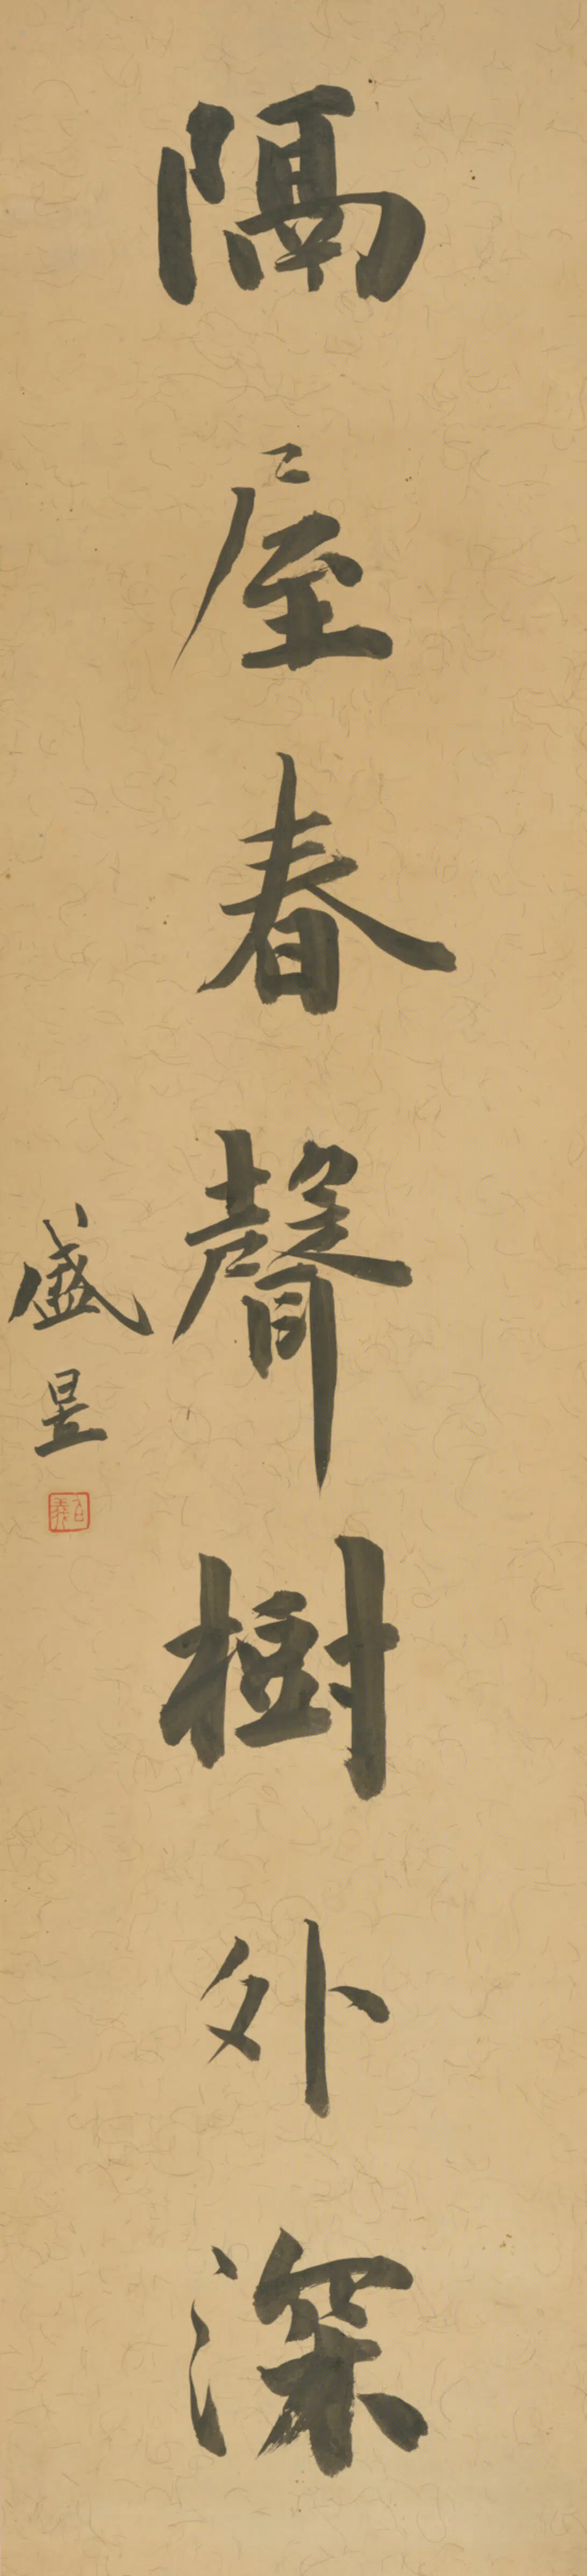 隔屋春聲樹外深
盛昱